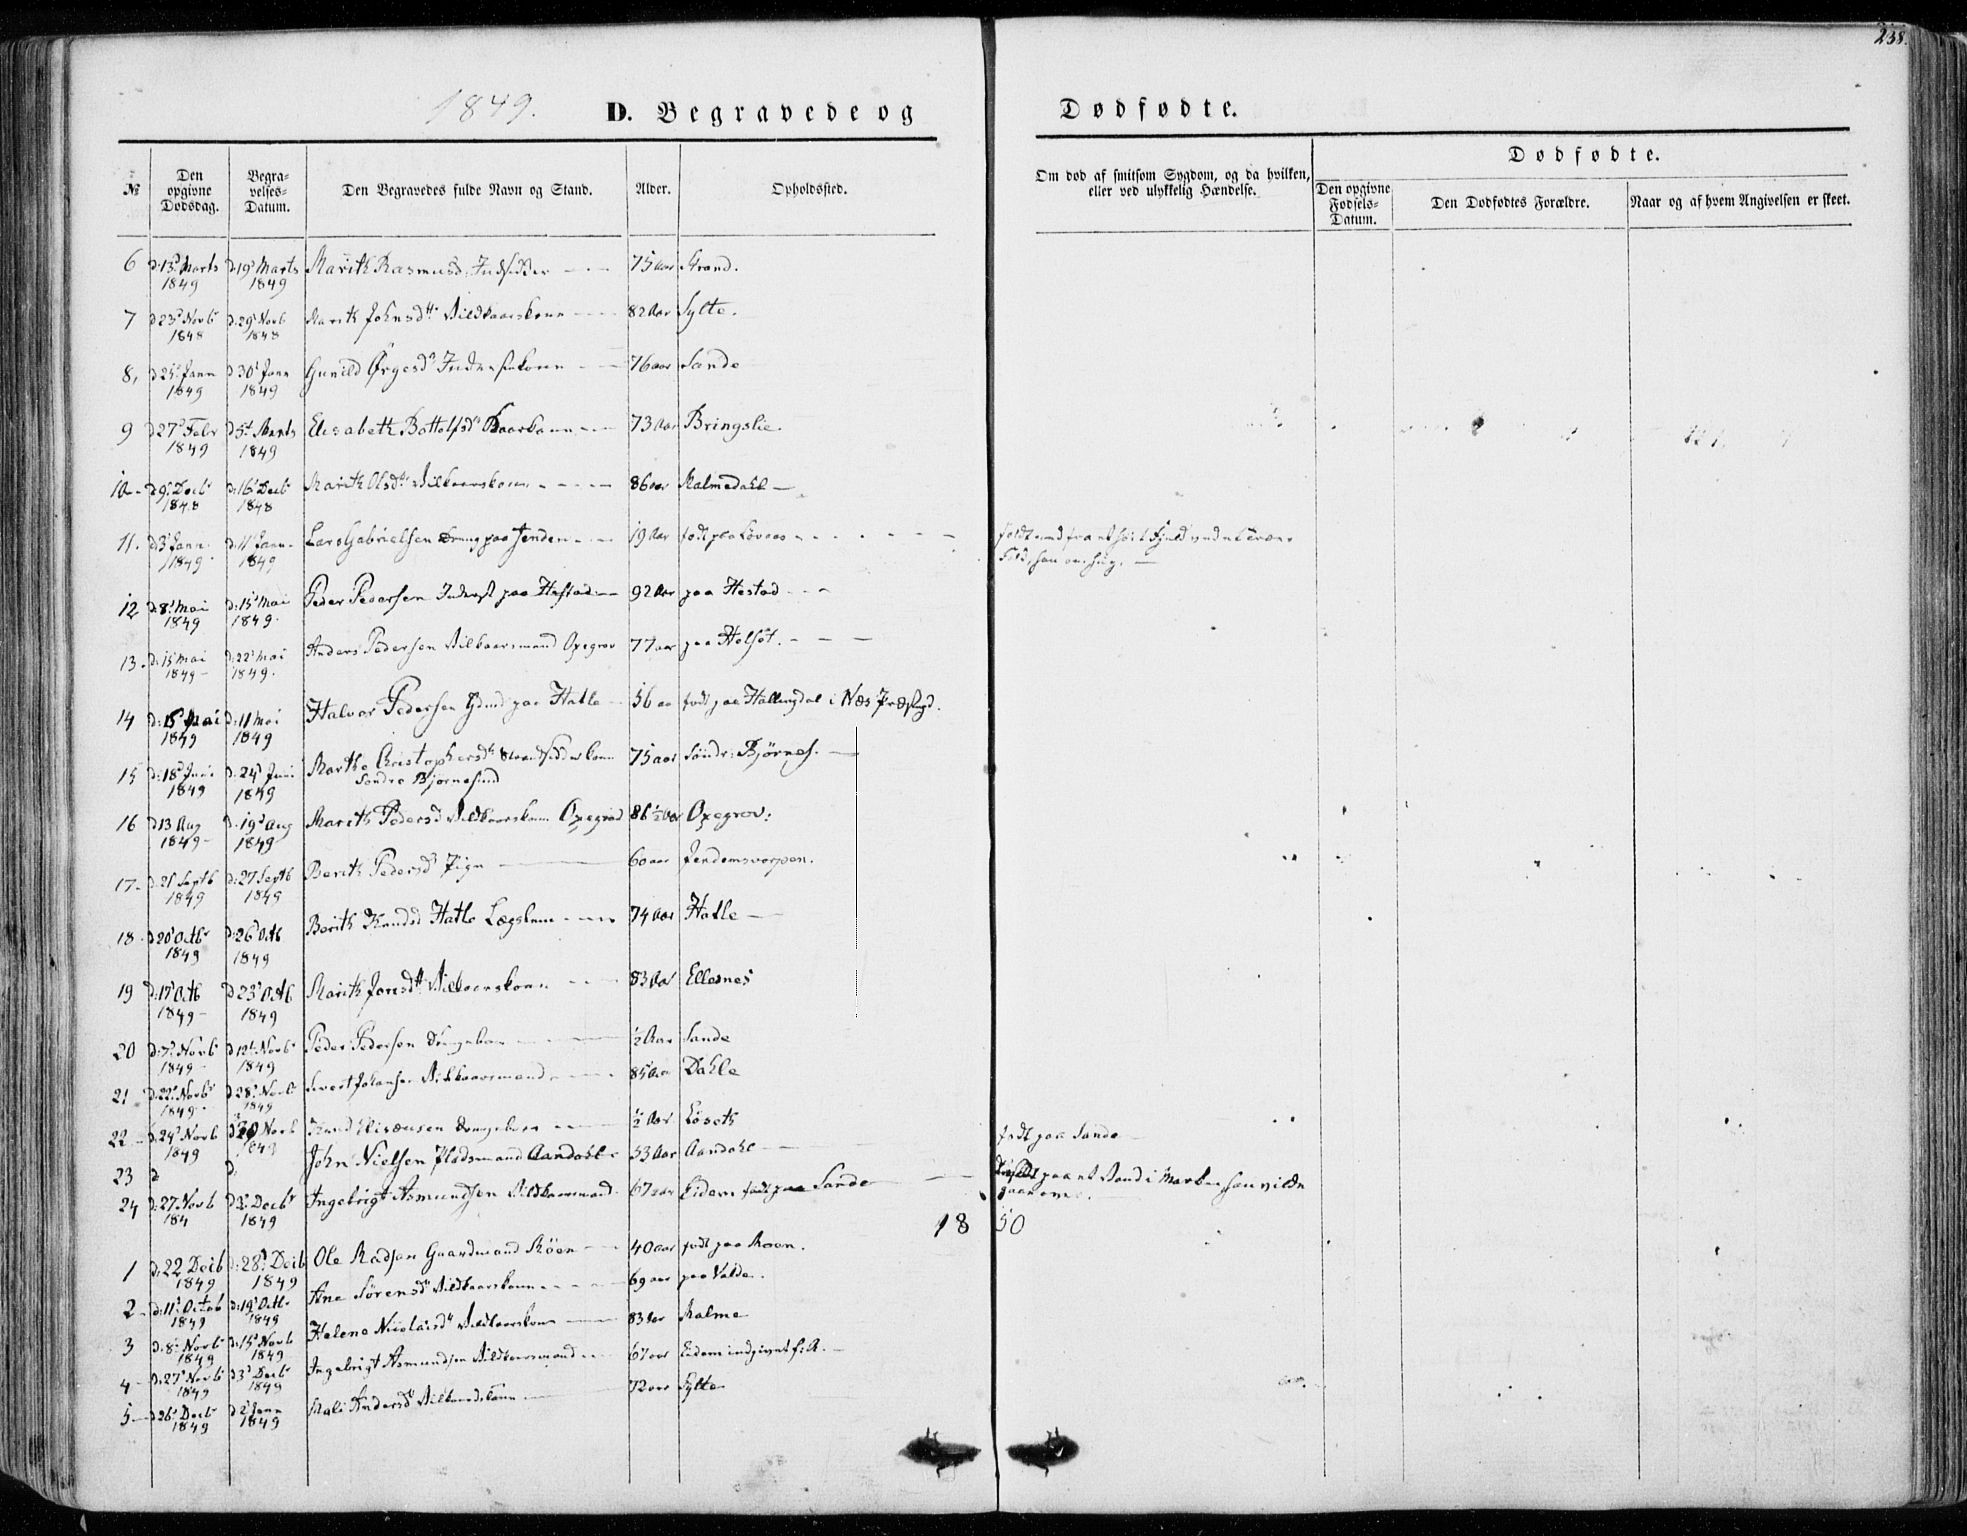 238.
1849. D. Begravede og Dødfødte.
№
Den opgivne Dødsdag.
Begravelses-Datum.
Den Begravedes fulde Navn og Stand.
Alder.
Opholdssted.
Om død af smitsom Sygdom, og da hvilken, eller ved ulykkelig Hændelse.
Dødfødte.
Den opgivne Fødsels-Datum.
Den Dødfødtes Forældre.
Naar og af hvem Angivelsen er skeet.
6 d: 13d Marts 1849 d: 19d Marts 1849 Marith Rasmusd. Indsidder 75 aar Strand.
7 d 23d Novbr 1848 d: 29d Novb 1848 Marith Johnsdtr Vilkaarskone 82 Aar Sylte.
8, d 25d Jann 1849 d 30d Jann 1849 Gunild Ørgesd 76 aar Sande
9 d 27d Febr 1849 d 5t Marts 1849 Elisabeth Bottolfsd Kaarkone 73 Aar Bringslie.
10 d 9d Decbr 1848 d: 16d Decbr 1848 Marith Olsdtr Vilkaarskone 86 aar Malmedahl
11. d: 3d Jann 1849 d: 11d Jann 1849 Lars Gabrielsen Dreng paa Jenden 19 Aar født paa Løvaas
12 d: 8d Mai 1849 d: 15d Mai 1849 Peder Pedersen Inderst paa Hestad 92 Aar paa Hestad
13. d: 15d Mai 1849 d: 22d Mai 1849. Anders Pedersen Vilkaarsmand Oxegrov 77 aar paa
14 d: 15d Mai 1849 d: 11 Mai 1849 Halvor Pedersen Gdmd paa Hatle 56 aa født paa Hallingdal i Næs Præstgd.
15 d: 18d Juni 1849 d: 24d Juni 1849 Marthe Christophersdtr kone 75 aar Søndr: Bjørnes.
Søndre Bjørnesund
16 d 13 Aug 1849 d: 19d Aug 1849 Marith Pedersd Vilkaarskone Oxegrov 86 ½ Aar Oxegrov:
17. d: 21 Septb 1849 d: 27 Septb 1849 Berith Pedersd Pige 60 aar Jendemsvorpen.
18 d 20d Octbr 1849 d: 26d Octb 1849 Berith Knudsd Hatle Lægslem 74 Aar Hatle
19 d: 17d Octb 1849 d 23d Octb 1849 Marith Jonsdtr Vilkaarskone 83 Aar Ellesnes
20 d: 7d Novb 1849 d 12t Novbr 1849 Peder Pedersen Drengebarn ½ Aar Sande
21 d: 22d Novbr 1849 d 28d Novb 1849 Sivert Johansen Vilkaarsmand 85 Aar Dahle
22 d: 24d Novb 1849 d 30 Novb 1849 Knud Eliseussen Drengebarn ½ Aar Løseth
23 d d: John Nielsen Pladsmand Aandahl 53 Aar Aandahl født paa Sande
24 d: 27 Novb 184 d 3d Decbr 1849 Ingebrigt Asmundsen Vilkaarsmand 67 aar Eidem født paa Sande
1850
1 d: 22 Decb 1849 d: 28d Decb 1849 Ole Madsen Gaardmand Moen 40 aar født paa Moen.
2 d: 11d Octob 1849 d: 19d Octbr 1849 Ane Sørensdtr Vilkaarskone 69 aar paa Valde.
3 d: 8d Novbr 1849 d: 15d Novb 1849 Helene Nicolaisdtr Vilkaarskone 83 Aar Malme
4 d: 27d Novb 1849 d 3d Decbr 1849 Ingebrigt Asmundsen Vilkaarsmand 67 aar Eidem
5 d 26d Decbr 1849 d 2d Jann 1849 Mali Andersdtr Vilkaarskone 72 aar Sylte